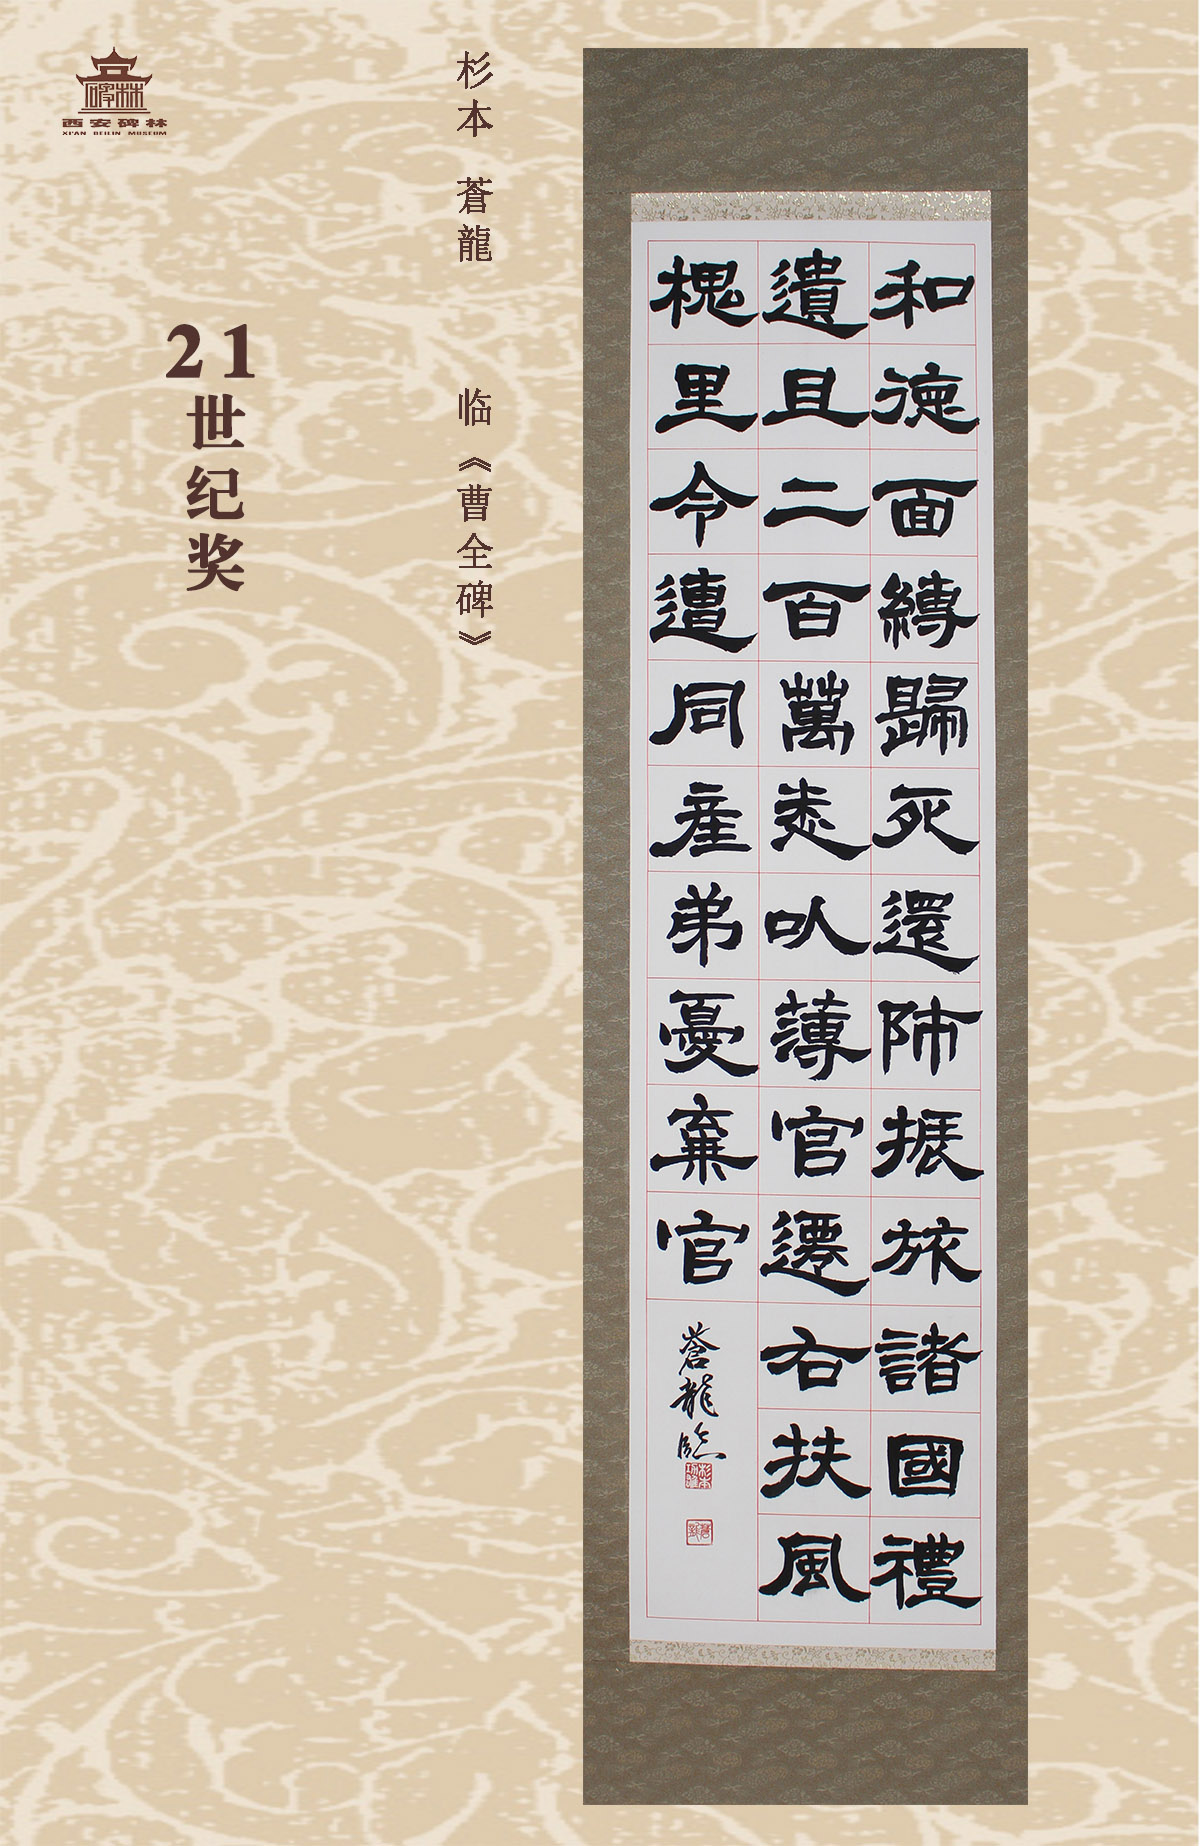 西安碑林
XI'AN BEILIN MUSEUM
21世纪奖
杉本 蒼龍 临《曹全碑》
和德面縛歸死還师振旅諸國禮
遺且二百萬悉以薄官遷右扶風
槐里令遭同産弟憂棄官
蒼龍臨